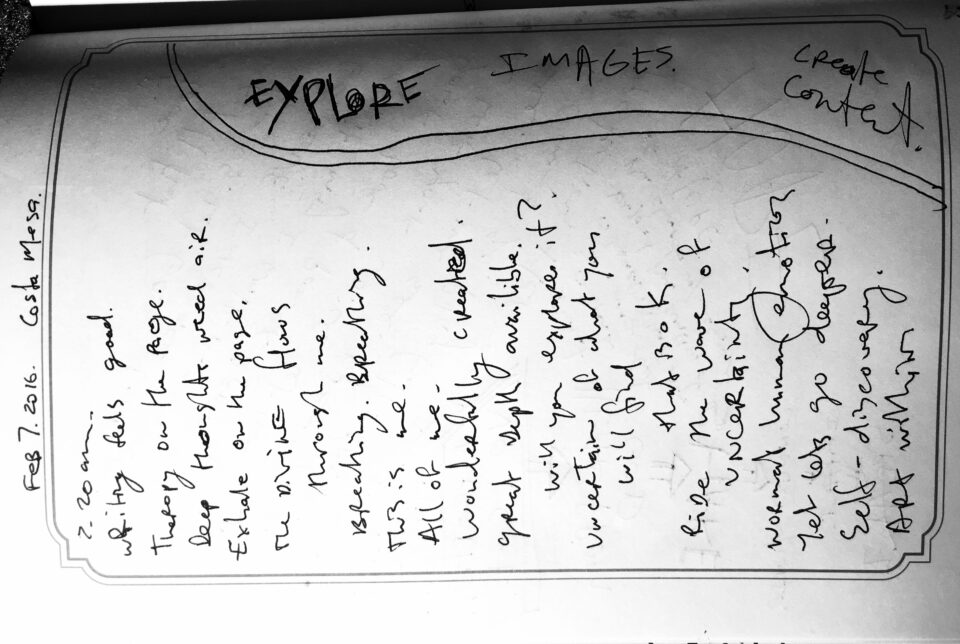 Feb 7. 2016. Costa Mesa.
EXPLORE
IMAGES.
Create
Content.
2.20am.
writing feels good.
Therapy on the page.
Deep thoughts need air.
Exhale on the page.
The DIVINE flows
through me.
Breathing. Breathing.
This is me.
All of me.
wonderfully created
great depth availible.
will you explore it?
uncertain of what you
will find
that is OK.
Ride the wave of
uncertainty.
normal human emotion
yet lets go deeper.
Self-discovery.
Art within